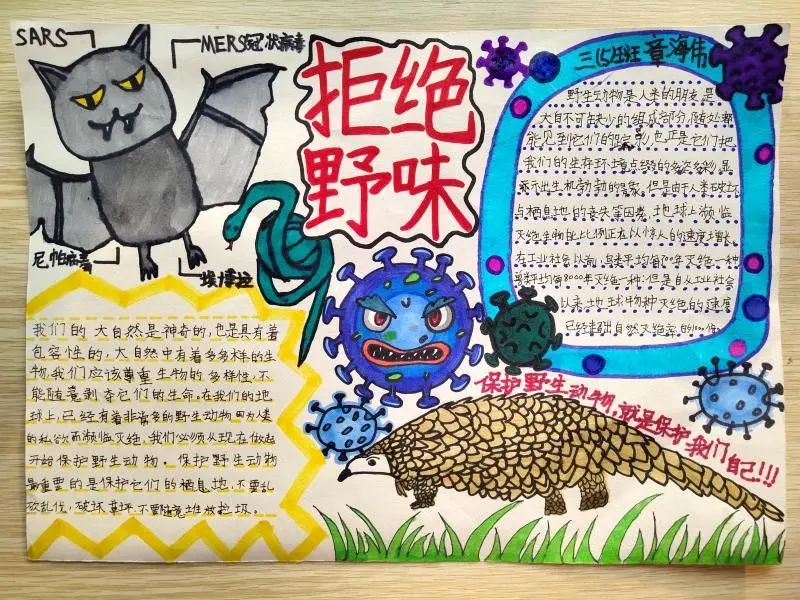 SARS
MERS冠状病毒
尼帕病毒
埃博拉
拒绝
野味
三(5)班 章海伟
野生动物是人类的朋友,是
大自不可缺少的组成部分,随处都
能见到它们的踪影,也正是它们把
我们的生存环境点缀的多姿多彩,显
示出生机勃勃的景象,但是由于人类破坏
栖息地的丧失等因素,地球上濒临
灭绝生物的比例正在以惊人的速度增长,
在工业社会以前,鸟类平均每300年灭绝一种
兽类平均每8000年灭绝一种,但是自从工业社会
以来,地球物种灭绝的速度
已经超出自然灭绝率的100倍。
我们的大自然是神奇的,也是具有着
包容性的,大自然中有着多多样的生
物,我们应该尊重生物的多样性,不
能随意剥夺它们的生命,在我们的地
球上,已经有着非常多的野生动物因为人类
的私欲而濒临灭绝,我们必须从现在做起
开始保护野生动物。保护野生动物
最重要的是保护它们的栖息地,不要乱
砍乱伐,破坏草坪,不要随意堆放垃圾。
保护野生动物,就是保护我们自己!!!